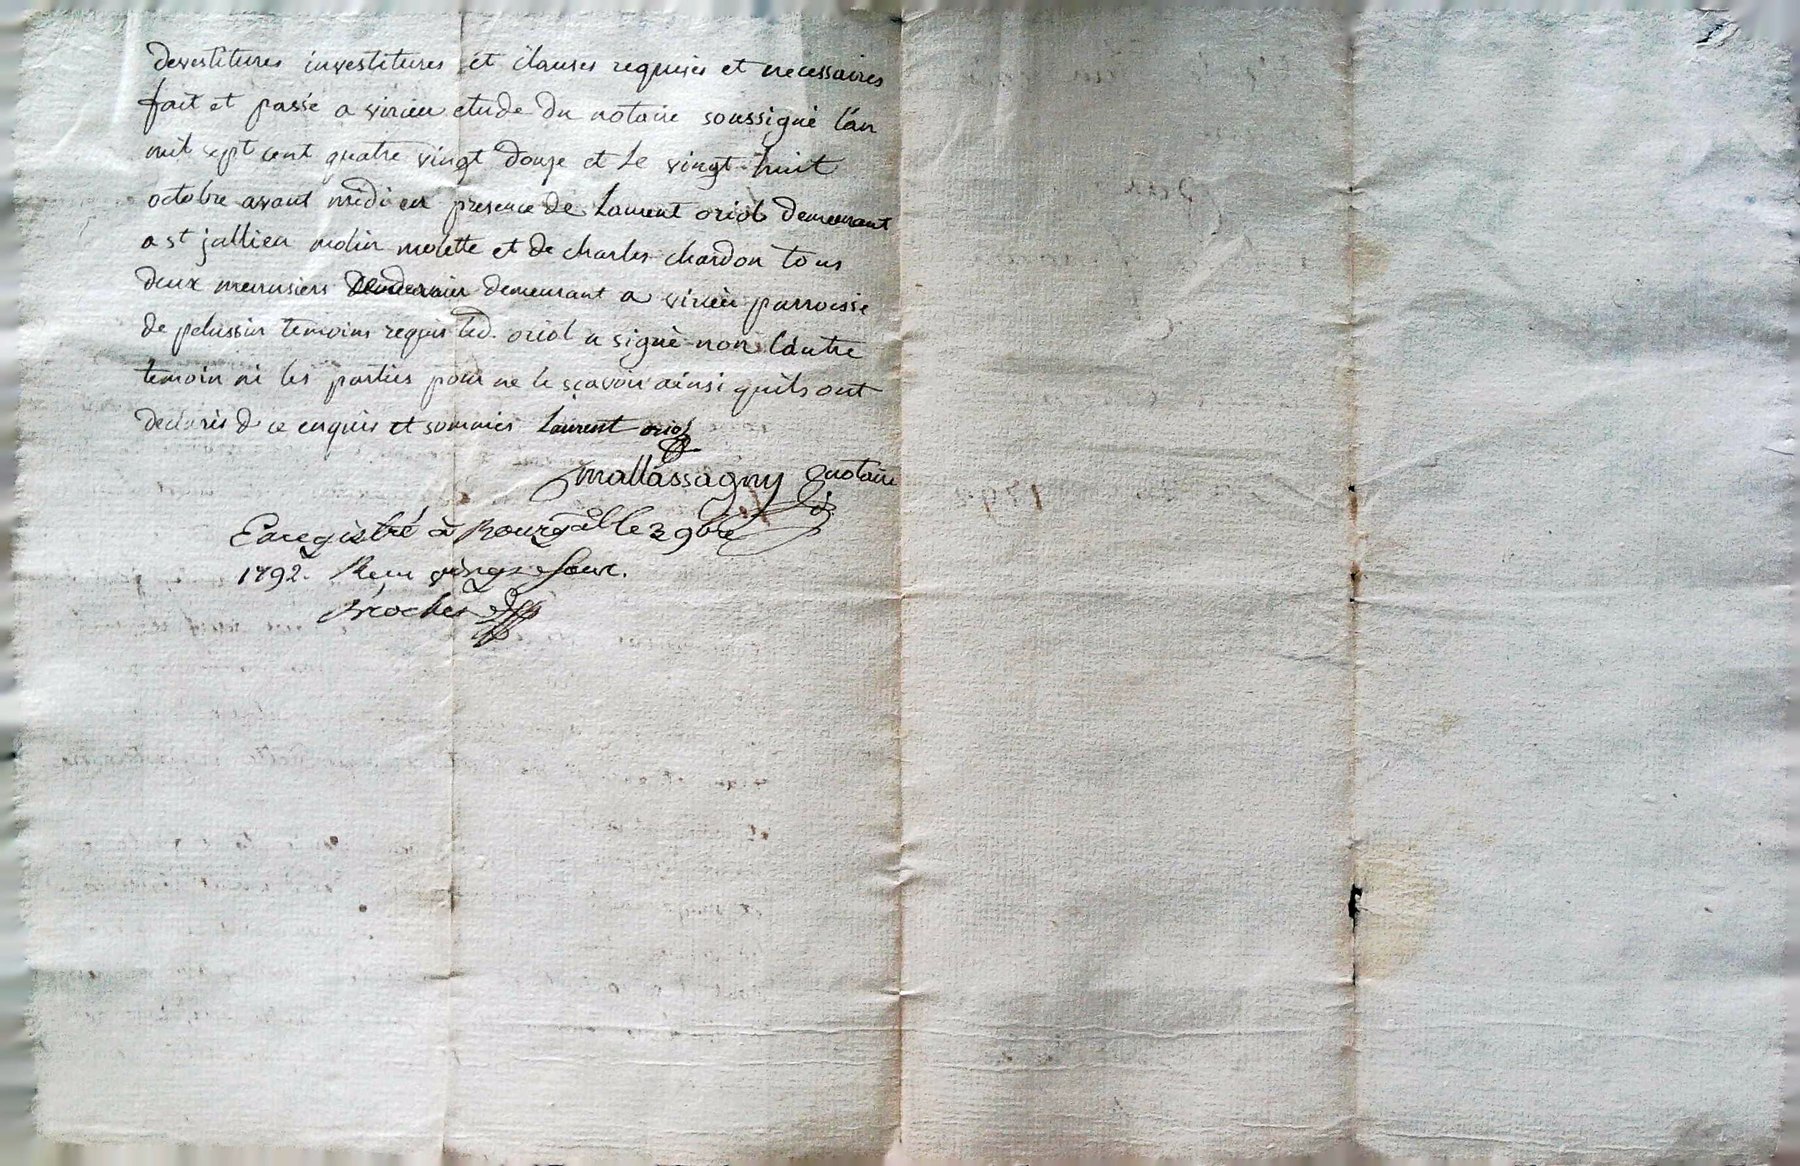 devestitures investitures et clauses requises et necessaires
fait et passé a virieu etude du notaire soussigné l'an
mil sept cent quatre vingt douze et le vingt huit
octobre avant midi en presence de Laurent oriol demeurant
a st jullien molin molette et de charles chardon tous
deux menusiers demeurant a virieu parroisse
de pelussin temoins requis led. oriol a signé non l'autre
temoin ni les parties pour ne le sçavoir ainsi quils ont
declarés de ce enquis et sommés Laurent oriol
mallassagny notaire
Enregistré à Bourgal le 3 9bre
1792. Recu vingt sous.
Brochet
1792